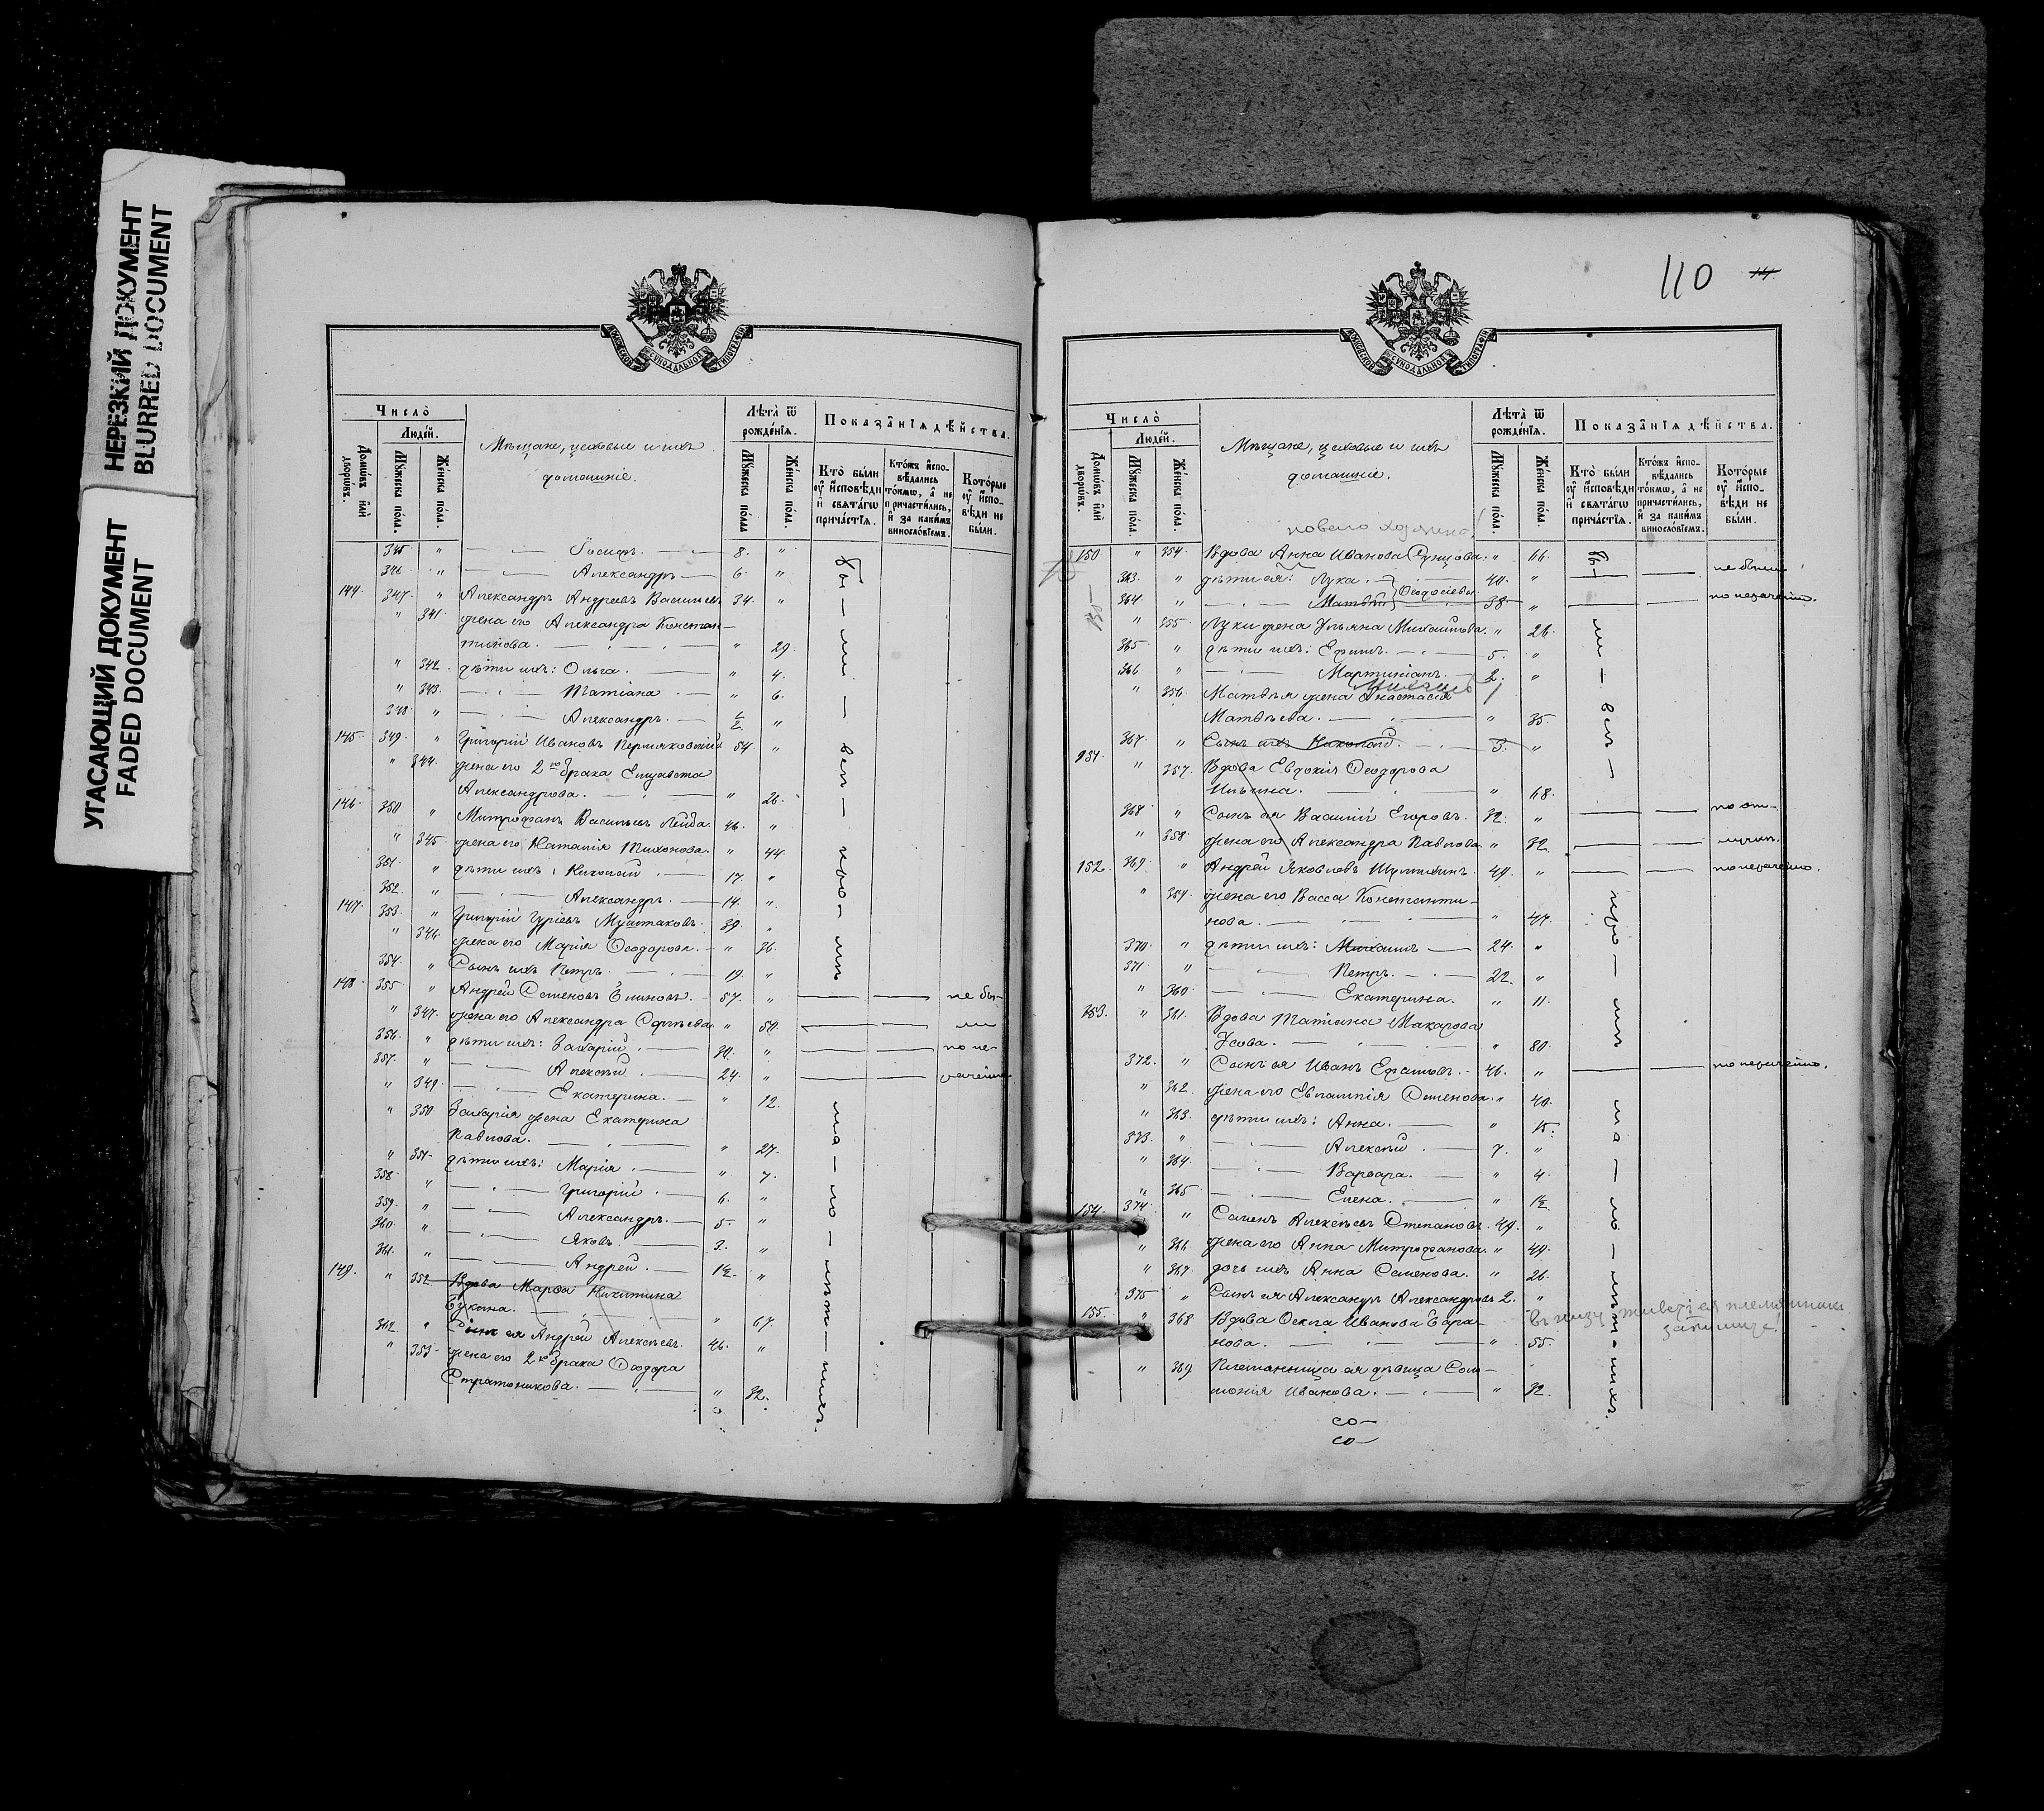 НЕРЕЗКИЙ ДОКУМЕНТ
BLURRED DOCUMENT
УГАСАЮЩИЙ ДОКУМЕНТ
FADED DOCUMENT
МОСКОВСКОЙ СѴНОДАЛЬНОЙ ТИПОГРАФІИ
Число̀
Люде́й.
Домѡ́въ и҆лѝ дворѡ́въ.
Мꙋ́жеска по́ла.
Же́нска по́ла.
Мѣщане, цеховые и ихъ
домашніе.
Лѣта̀ ѿ рожде́нїѧ.
Мꙋ́жеска по́ла.
Же́нска по́ла.
Показа̑нїѧ дѣ́йства.
Кто̀ бы́ли оу҆ и҆сповѣ́ди и҆ свѧта́гѡ прича́стїѧ.
Кто́жъ и҆спо-вѣ́дались то́кмѡ, а҆ не причасти́лись, и҆ за каки́мъ винослѡ́вїемъ.
Кото́рые оу҆ и҆спо-вѣ́ди не бы́ли.
345 " — Іосифъ. — 8. "
346 " — Александръ — 6. "
144. 347. " Александръ Андреевъ Васильевъ 34. "
" 341. жена его Александра Констан-
тинова. — " 29.
" 342. дѣти ихъ: Ольга. — " 4.
" 343. — Татіана — " 6.
348. " — Александръ. — ½ "
145. 349. " Григорій Ивановъ 54. "
" 344. жена его 2го брака Елисавета
Александрова. — " 26.
146. 350 " Митрофанъ Васильевъ 46. "
" 345. жена его Наталія Тихонова. " 44.
351. " дѣти ихъ: Николай — 17. "
352. " — Александръ. — 14. "
147. 353. " Григорій Гуріевъ Муштаковъ. 39. "
" 346. жена его Марія Ѳеодорова. — " 36.
354. " Сынъ ихъ Петръ. — 19. "
148. 355 " Андрей Семеновъ Блиновъ. 57. " — — не бы-
" 347. жена его Александра Сергѣева. " 50. — — ли
356. " дѣти ихъ: Захарій. — 30. " — — по не-
357. " — Алексѣй — 24. " — — раченію
" 349. — Екатерина. — " 12.
" 350 Захарія жена Екатерина
Павлова. — " 27.
" 351. дѣти ихъ: Марія. — " 7.
358. " — Григорій. — 6. "
359. " — Александръ. — 5. "
360. " — Яковъ. — 3. "
361. " — Андрей. — 1½. "
149. " 352. Вдова Марѳа Никитина
Букина. — " 67.
362. " Сынъ ея Андрей Алексѣевъ. 46. "
" 353. жена его 2го брака Ѳеодора
Стратоникова. — " 32.
бы — ли — вел — ико — мъ
ма — ло — лѣт — нихъ
110
Число̀
Люде́й.
Домѡ́въ и҆лѝ дворѡ́въ.
Мꙋ́жеска по́ла.
Же́нска по́ла.
Мѣщане, цеховые и ихъ
домашніе.
Лѣта̀ ѿ рожде́нїѧ.
Мꙋ́жеска по́ла.
Же́нска по́ла.
Показа̑нїѧ дѣ́йства.
Кто̀ бы́ли оу҆ и҆сповѣ́ди и҆ свѧта́гѡ прича́стїѧ.
Кто́жъ и҆спо-вѣ́дались то́кмѡ, а҆ не причасти́лись, и҆ за каки́мъ винослѡ́вїемъ.
Кото́рые оу҆ и҆спо-вѣ́ди не бы́ли.
новаго хозяина!
150 " 354. Вдова Анна Иванова " 66.
363. " дѣти ея: Лука. 40. " — — не были
364. " — Матвѣй } Ѳеодосіевы. 38. " — — по нераченію.
" 355 Луки жена Ульяна Михайлова. " 26.
365. " дѣти ихъ: Ефимъ. — 5. "
366 " — Мартиніанъ. — 2. "
" 356. Матвѣя жена Анастасія
Матвѣева. — " 35.
367. " Сынъ ихъ Николай. — 3. "
151. " 357. Вдова Евдокія Ѳеодорова
Ильина. — " 68.
368 " Сынъ ея Василій Егоровъ. 32. " — — по от-
" 358. жена его Александра Павлова " 32. — — лучк.
152. 369. " Андрей Яковлевъ 49. " — — по нераченію.
" 359. жена его Васса Константи-
нова. — " 47.
370. " дѣти ихъ: Михаилъ — 24. "
371. " — Петръ. — 22. "
" 360. — Екатерина. " 11.
153. " 361. Вдова Татіана Макарова
Усова. — " 80.
372. " Сынъ ея Иванъ Ефимовъ. 46. " — — по нераченію.
" 362. жена его Евлампія Семенова. " 40.
" 363. дѣти ихъ: Анна. — " 15.
373. " — Алексѣй. — 7. "
" 364. — Варвара. — " 4.
" 365. — Елена. — " 1½.
154. 374. " Семенъ Алексѣевъ Степановъ. 49. "
" 366. жена его Анна Митрофанова. " 49.
" 367. дочь ихъ Анна Семенова. " 26.
375 " Сынъ ея Александръ Александровъ 2. "
155. " 368 Вдова Ольга Иванова Бара-
нова. — " 55.
" 369. Племянница ея дѣвица Соло-
монія Иванова. — " 32.
внизу живетъ ея племянница
со-
со-